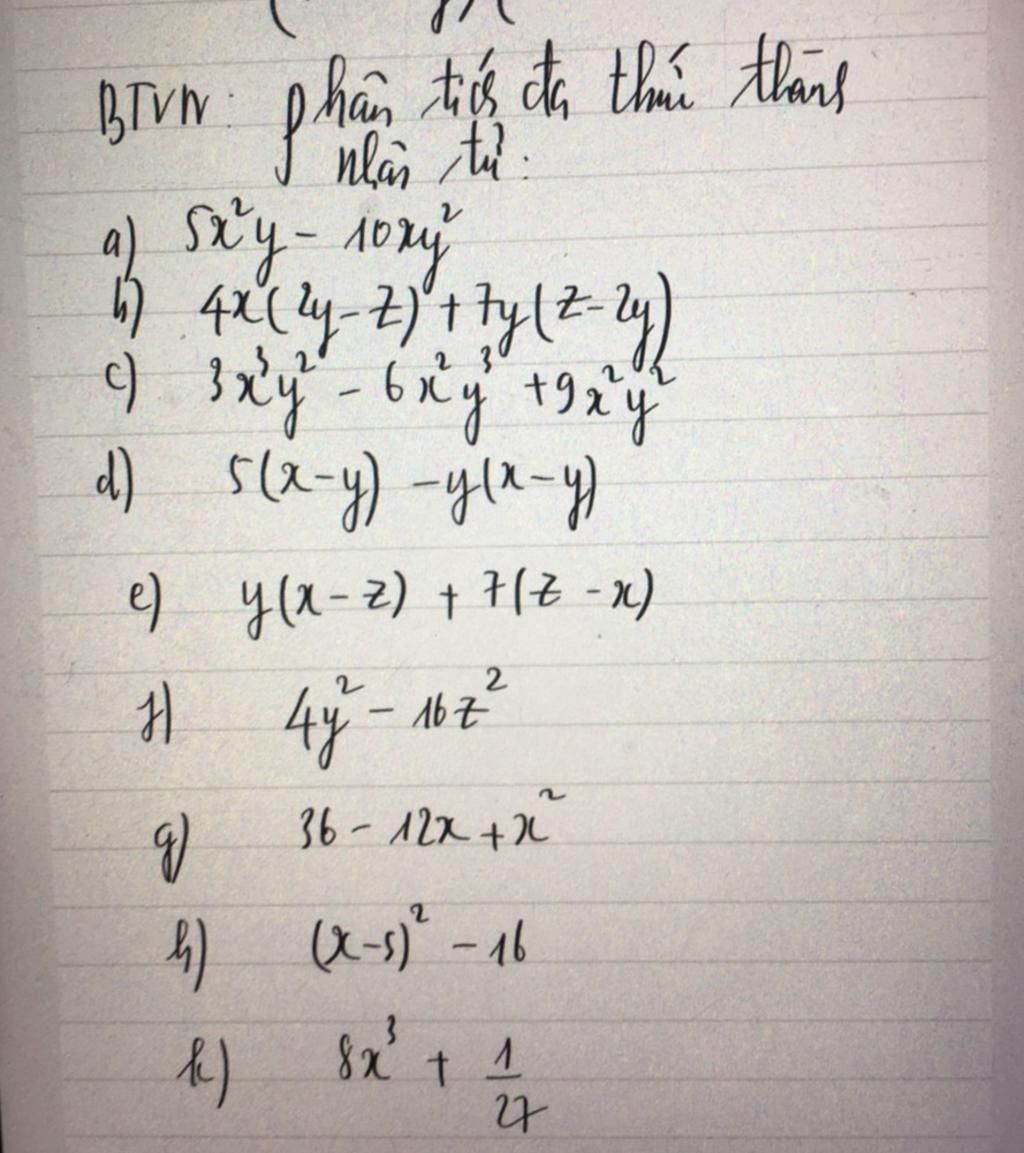 BTVN: phân tích đa thức thành
nhân tử:
a) 5x²y - 10xy²
b) 4x(2y-z) + 7y(z-2y)
c) 3x³y² - 6x²y³ + 9x²y²
d) 5(x-y) - y(x-y)
e) y(x-z) + 7(z-x)
f) 4y² - 16z²
g) 36 - 12x + x²
h) (x-5)² - 16
k) 8x³ + 1/27